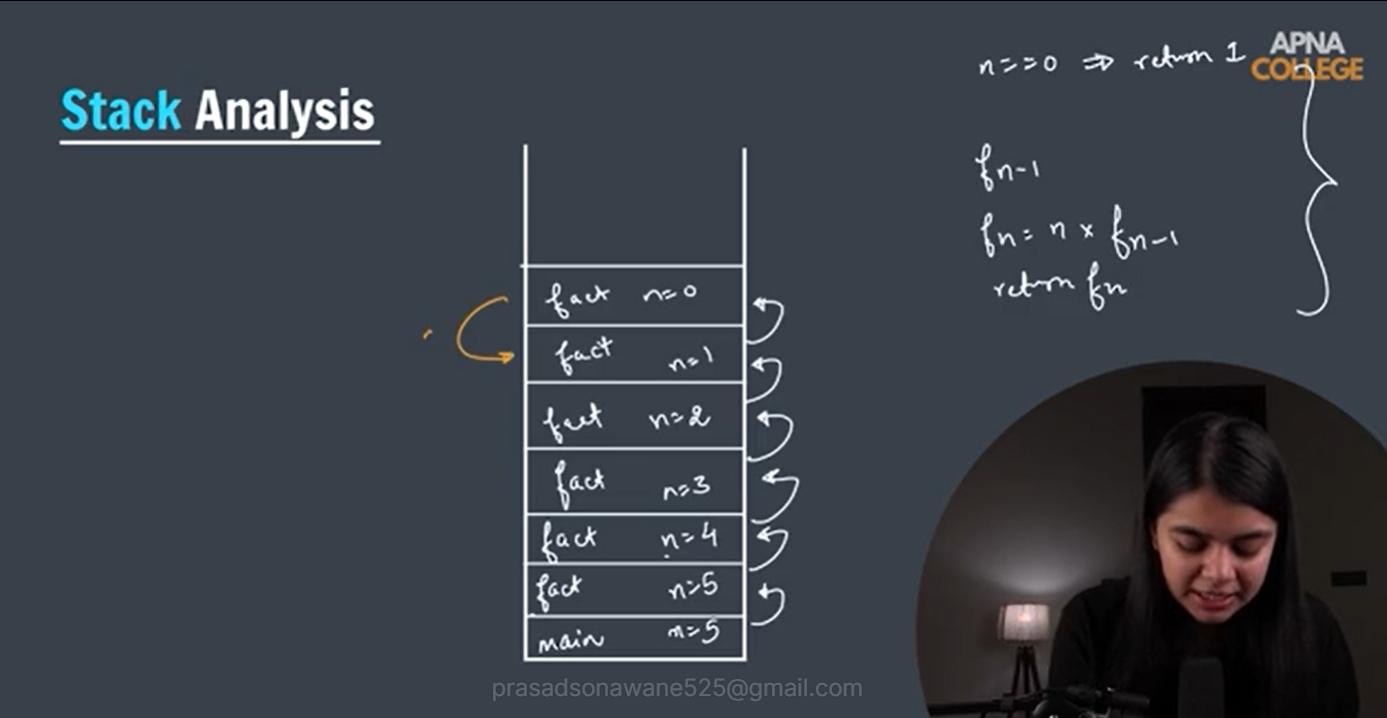 APNA
COLLEGE
Stack Analysis
n==0 ⇒ return 1
fn-1
fn= n x fn-1
return fn
fact n=0
fact n=1
fact n=2
fact n=3
fact n=4
fact n=5
main n=5
prasadsonawane525@gmail.com